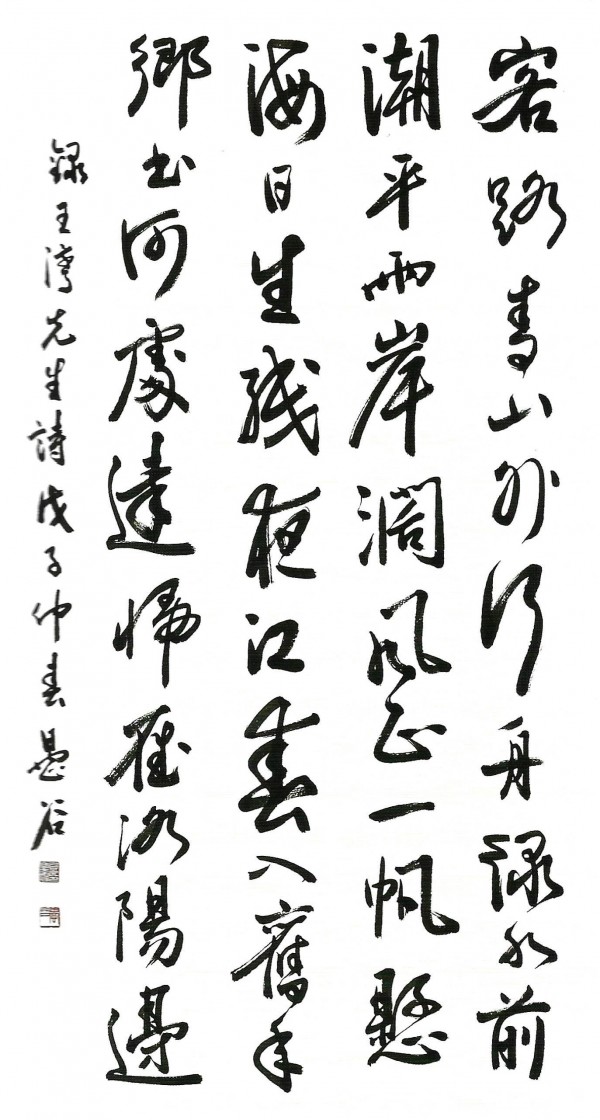 客路青山外行舟綠水前
潮平兩岸濶風正一帆懸
海日生殘夜江春入舊年
鄉書何處達歸雁洛陽邊
録王灣先生詩戊子仲春愚谷